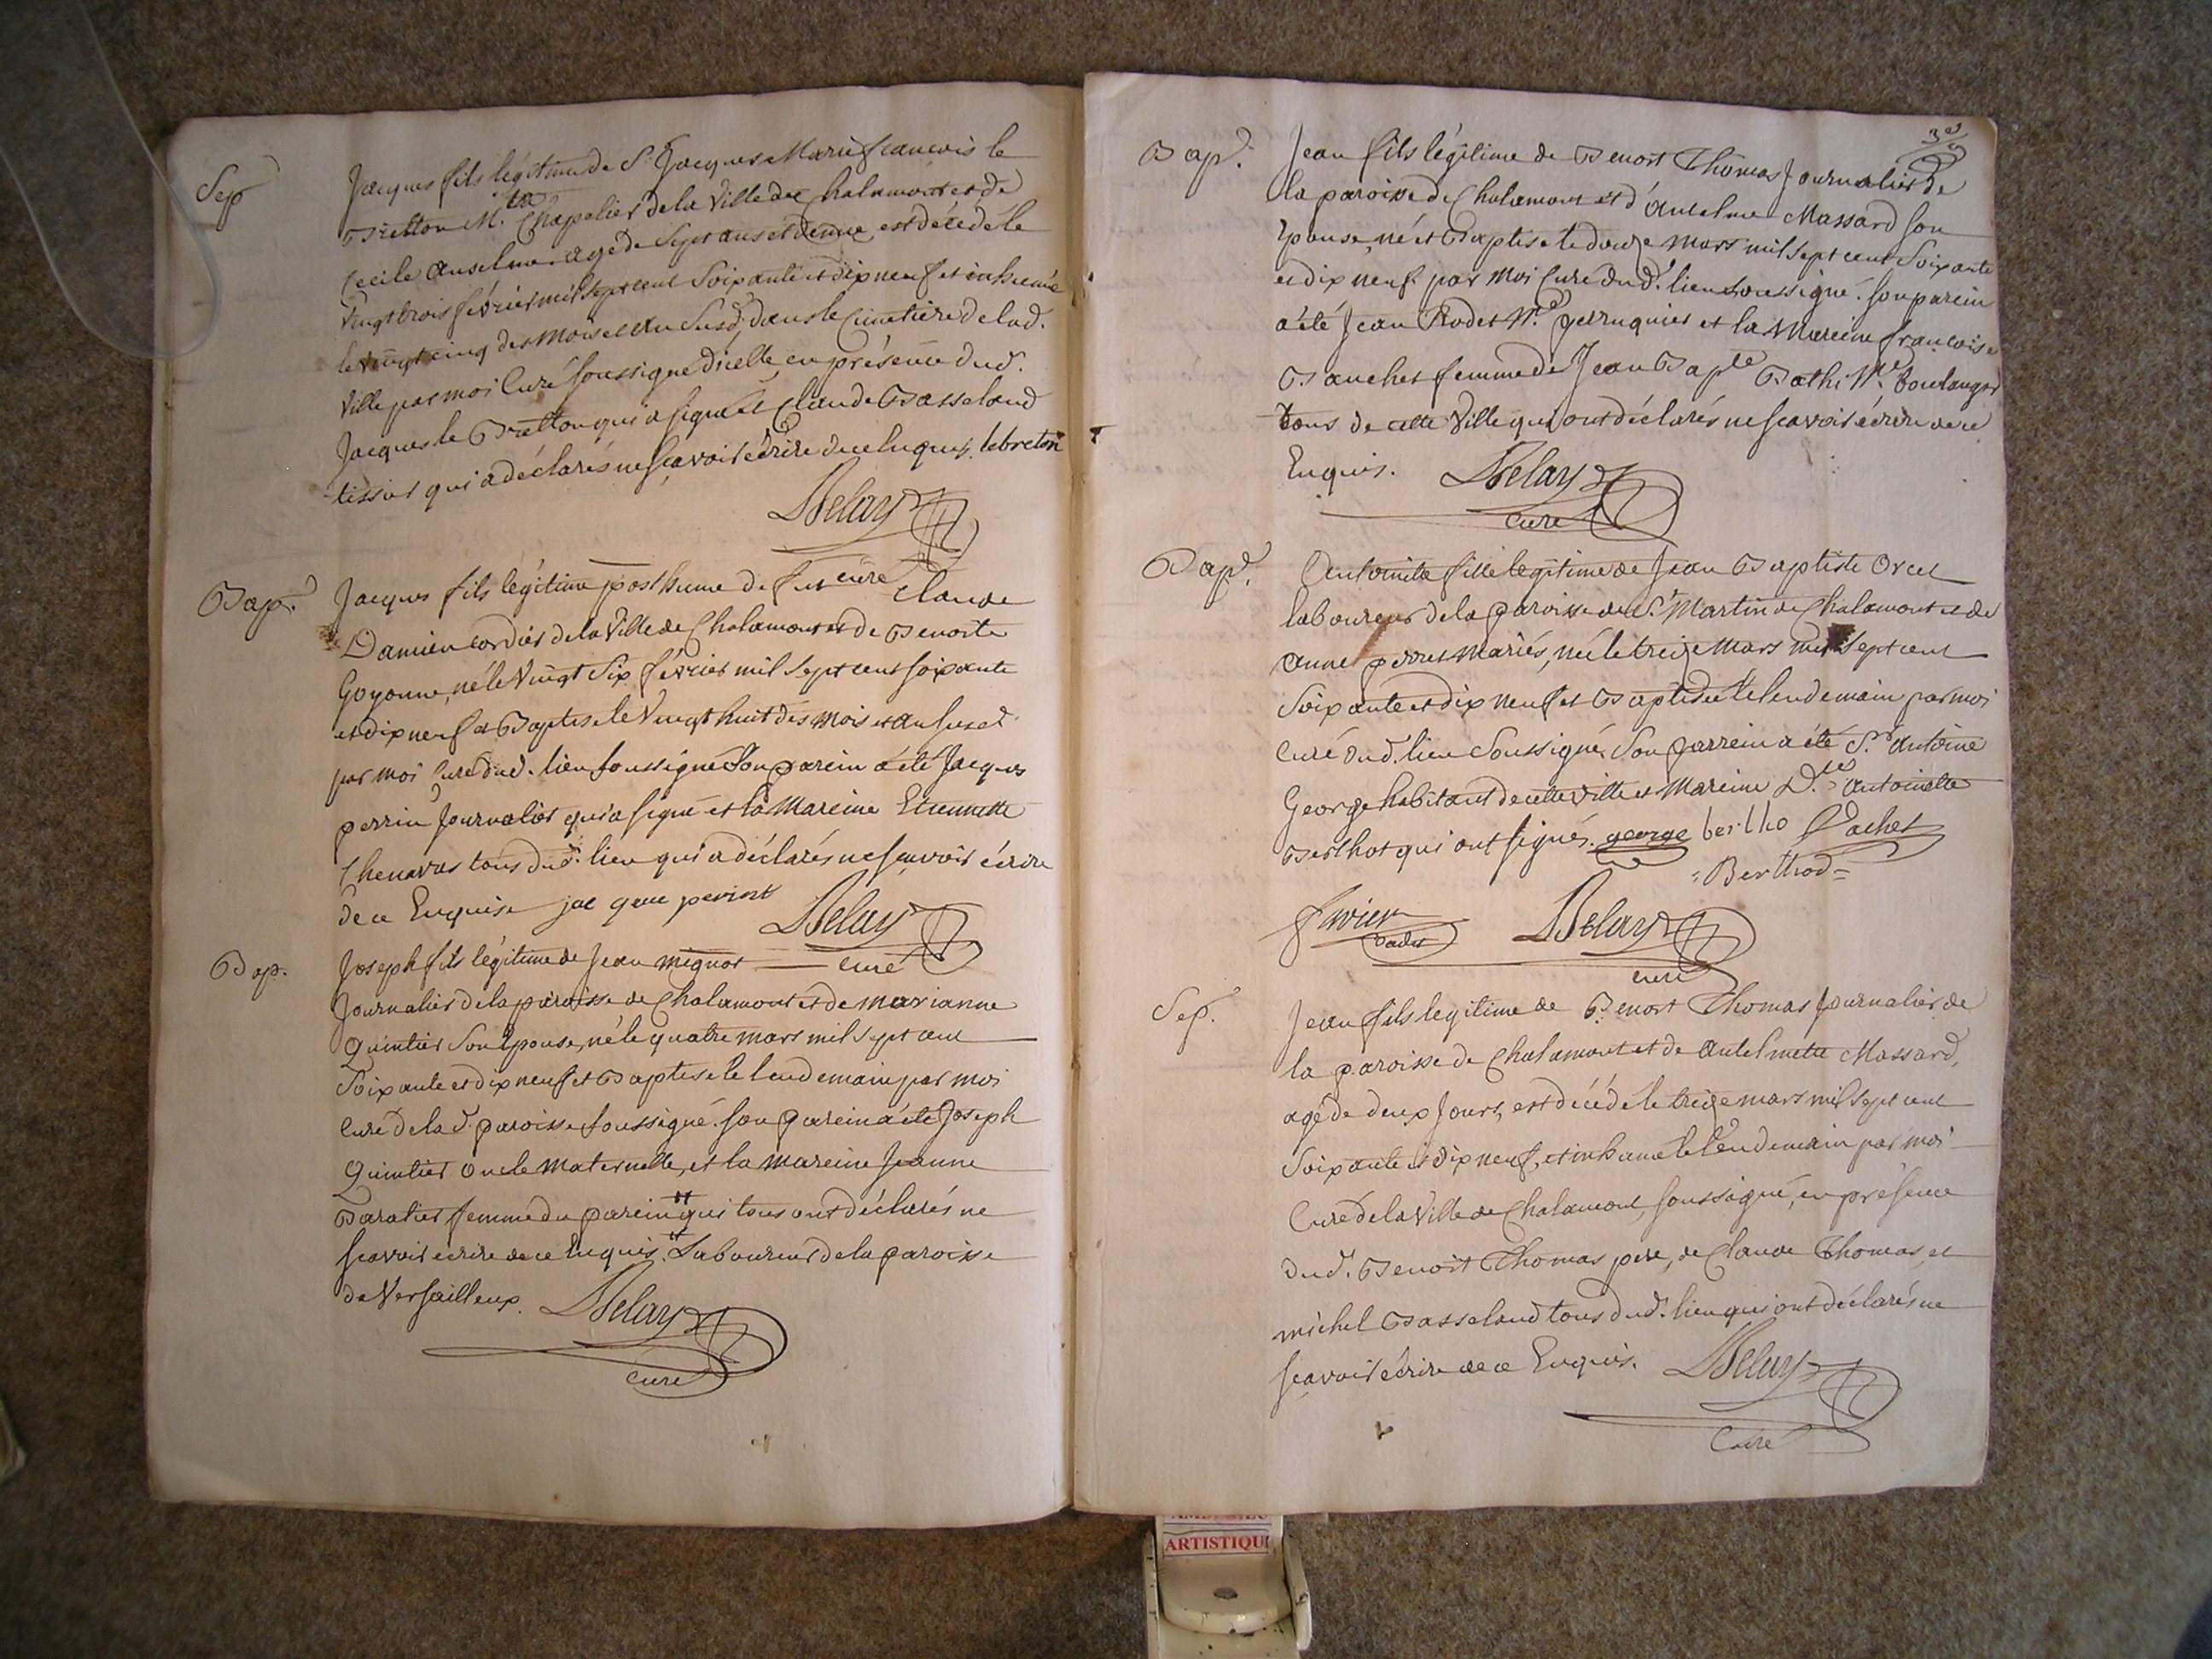 Sep
Jacques fils légitime de Sr Jacques Marie francois le
Bretton Me Chapelier de la Ville de Chalamont et de
Cecile Anselme agé de Sept ans et demie est décédé le
Vingt trois février mil sept cent Soixante et dix neuf et inhumé
le vingt cinq des mois et an susd. dans le Cimetière de lad.
Ville par moi Curé soussigné dicelle, en présence dud.
Jacques le Bretton qui a signé et Claude Basseland
tissier qui a déclarés ne scavoir écrire de ce Enquis. lebreton
Delay
curé
Bap.
Jacques fils légitime posthume de fut Claude
Damien cordier de la Ville de Chalamont et de Benoite
Goyonne, né le Vingt Six février mil sept cent soixante
et dix neuf et Baptisé le Vingt huit des mois et an susd
par moi Curé dud. lieu soussigné Son parein a été Jacques
perrin Journalier qui a signé et la Mareine Etiennette
Chenavas tous dud. lieu qui a déclarés ne scavoir écrire
de ce Enquise jac que perint
Delay
curé
Bap.
Joseph fils légitime de Jean mignot
Journalier de la paroisse de Chalamont et de marianne
Quintier Son Epouse, né le quatre mars mil sept cent
Soixante et dix neuf et Baptisé le lendemain par moi
Curé de lad. paroisse soussigné. son parein a été Joseph
Quintier oncle maternelle, et la mareine Jeanne
Baratier femme du parein qui tous ont déclarés ne
scavoir écrire de ce Enquis. Laboureur de la paroisse
de Versailleux.
Delay
curé
Bap.
Jean fils légitime de Benoit Thomas Journalier de
la paroisse de Chalamont et d'Antelme Massard son
Epouse, né et Baptisé le douze mars mil sept cent Soixante
et dix neuf par moi Curé dud. lieu soussigné. son parein
a été Jean Rodet Me perruquier et la Mareine francoise
Banchet femme de Jean Baple Bathi Me boulanger
tous de cette Ville qui ont déclarés ne scavoir écrire de ce
Enquis.
Delay
curé
Bap.
Antoinette fille légitime de Jean Baptiste Orcel
laboureur de la paroisse de St Martin de Chalamont et de
Anne perret mariés, née le treize mars mil sept cent
Soixante et dix neuf et Baptisée le lendemain par moi
Curé dud. lieu Soussigné. Son parrein a été Sr. Antoine
George habitant de cette ville et Mareine Dlle Antoinette
Berthot qui ont signés. george bertho Vachet
= Berthod =
favier
Delay
curé
Sep.
Jean fils legitime de Benoit Thomas Journalier de
la paroisse de Chalamont et de Antelmette Massard,
agé de deux Jours, est décédé le treize mars mil sept cent
Soixante et dix neuf, et inhumé le lendemain par moi
Curé de la Ville de Chalamont, soussigné, en présence
dud. Benoit Thomas pere, de Claude Thomas, et
michel Basseland tous dud. lieu qui ont déclarés ne
scavoir écrire de ce Enquis.
Delay
Curé
ARTISTIQU